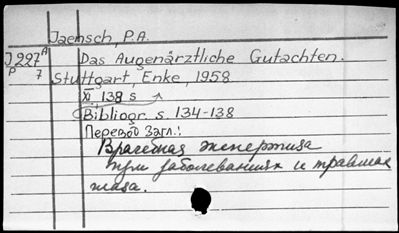 Jaensch, P.A.
J 227 A Das Augenärztliche Gutachten.
P 7 Stuttgart, Enke, 1958
XI, 138 s
Bibliogr. s. 134-138
Перевод Загл.:
Врачебная экспертиза
при заболеваниях и травмах
глаза.